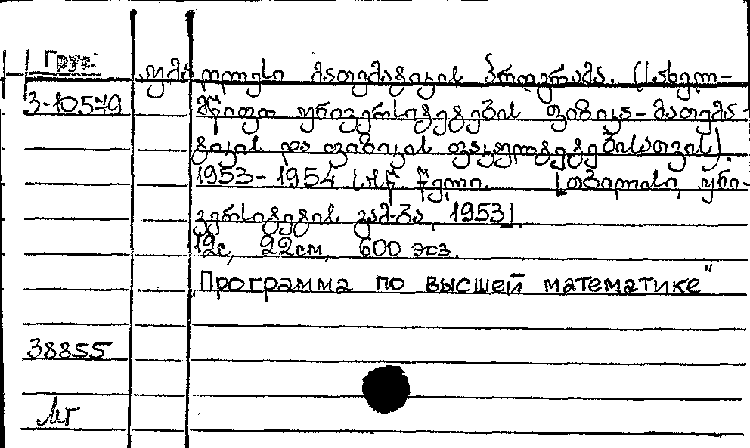 Груз.
უმაღლესი მათემატიკის პროგრამა. (სახელ-
3-10579 მწიფო უნივერსიტეტების ფიზიკა-მათემა-
ტიკის და ფიზიკის ფაკულტეტებისათვის).
1953-1954 სას. წელი. [თბილისი, უნი-
ვერსიტეტის გამ-ბა, 1953].
12с, 22см, 600 экз.
"Программа по высшей математике"
38855
МГ